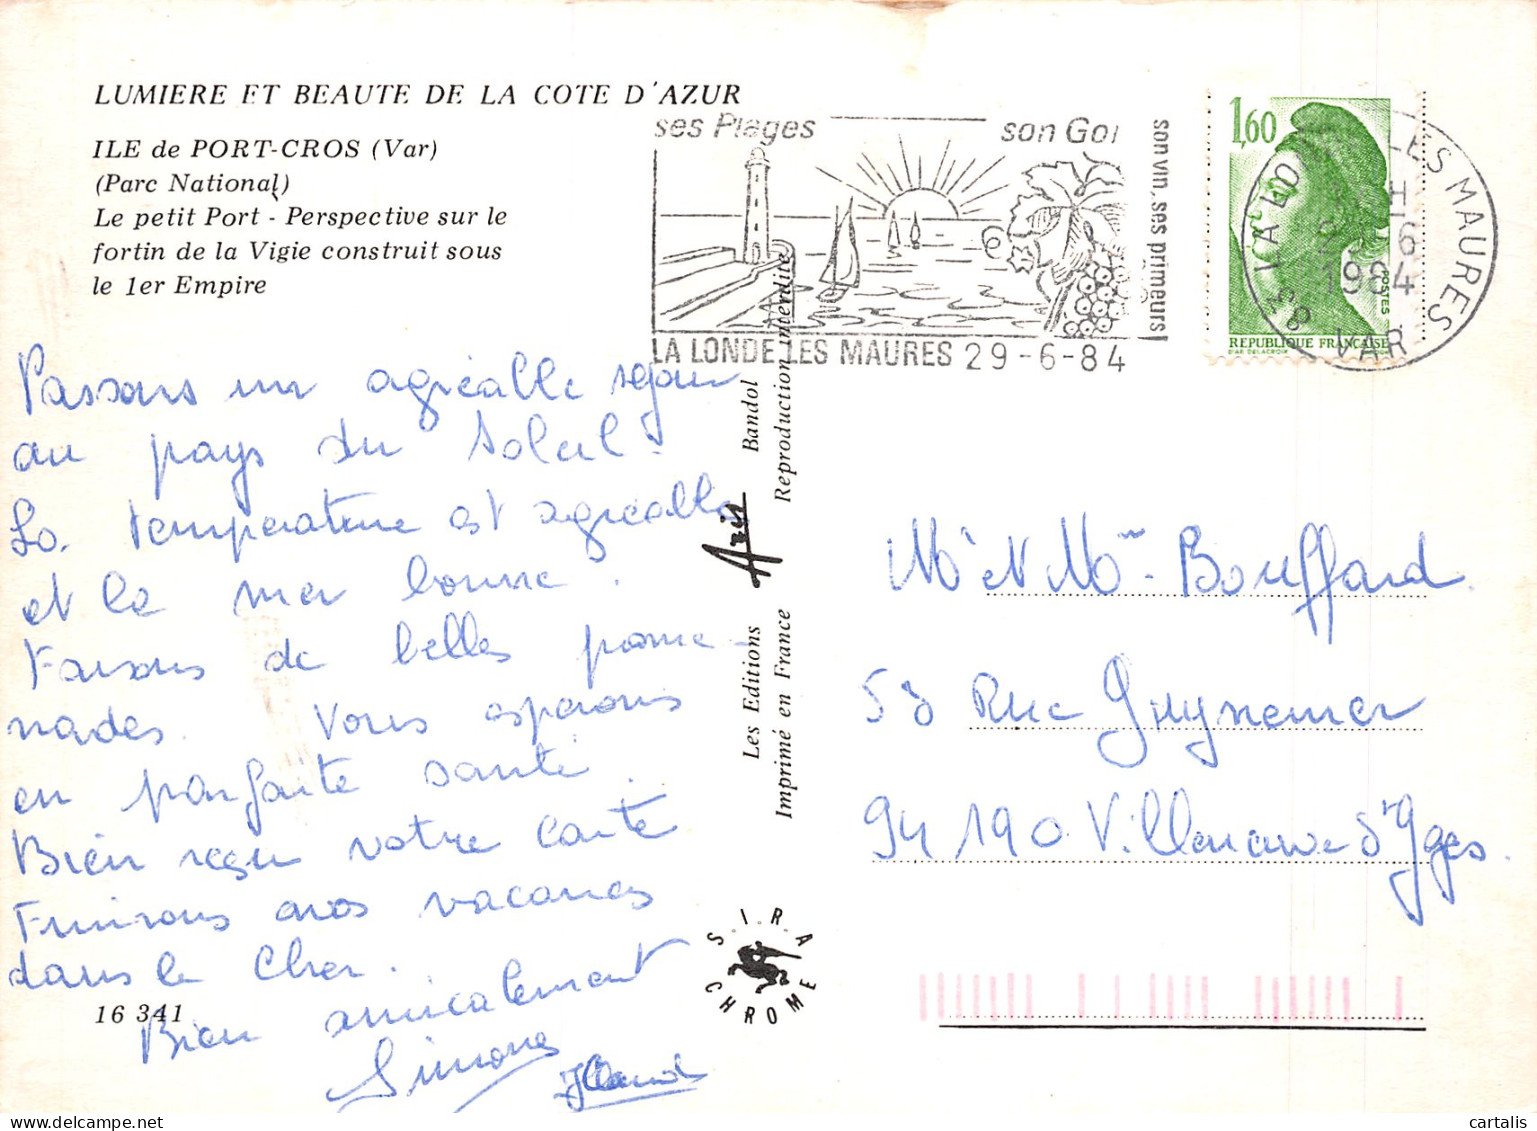 LUMIERE ET BEAUTE DE LA COTE D'AZUR
ILE de PORT-CROS (Var)
(Parc National)
Le petit Port - Perspective sur le
fortin de la Vigie construit sous
le 1er Empire
ses Plages son Gol
son vin, ses primeurs
LA LONDE LES MAURES 29-6-84
1,60
POSTES
REPUBLIQUE FRANÇAISE
D'AP. DELACROIX
83 LA LONDE LES MAURES
1984
VAR
Passons un agréable séjour
au pays du soleil.
La température est agréable
et la mer bonne.
Faisons de belles prome-
nades. Vous espérons
en parfaite santé.
Bien reçu votre carte
Finirons nos vacances
dans le Cher.
Bien amicalement
Simone
16 341
Les Editions Aris Bandol
Imprimé en France Reproduction interdite
S.I.R.A
CHROME
Mr et Mme Bouffard
53 Rue Guynemer
94 190 Villeneuve d'Yges.
cartalis
cartalis.delcampe.net